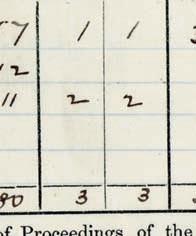 7 1 1
12
11 2 2
90 3 3
of Proceedings of the